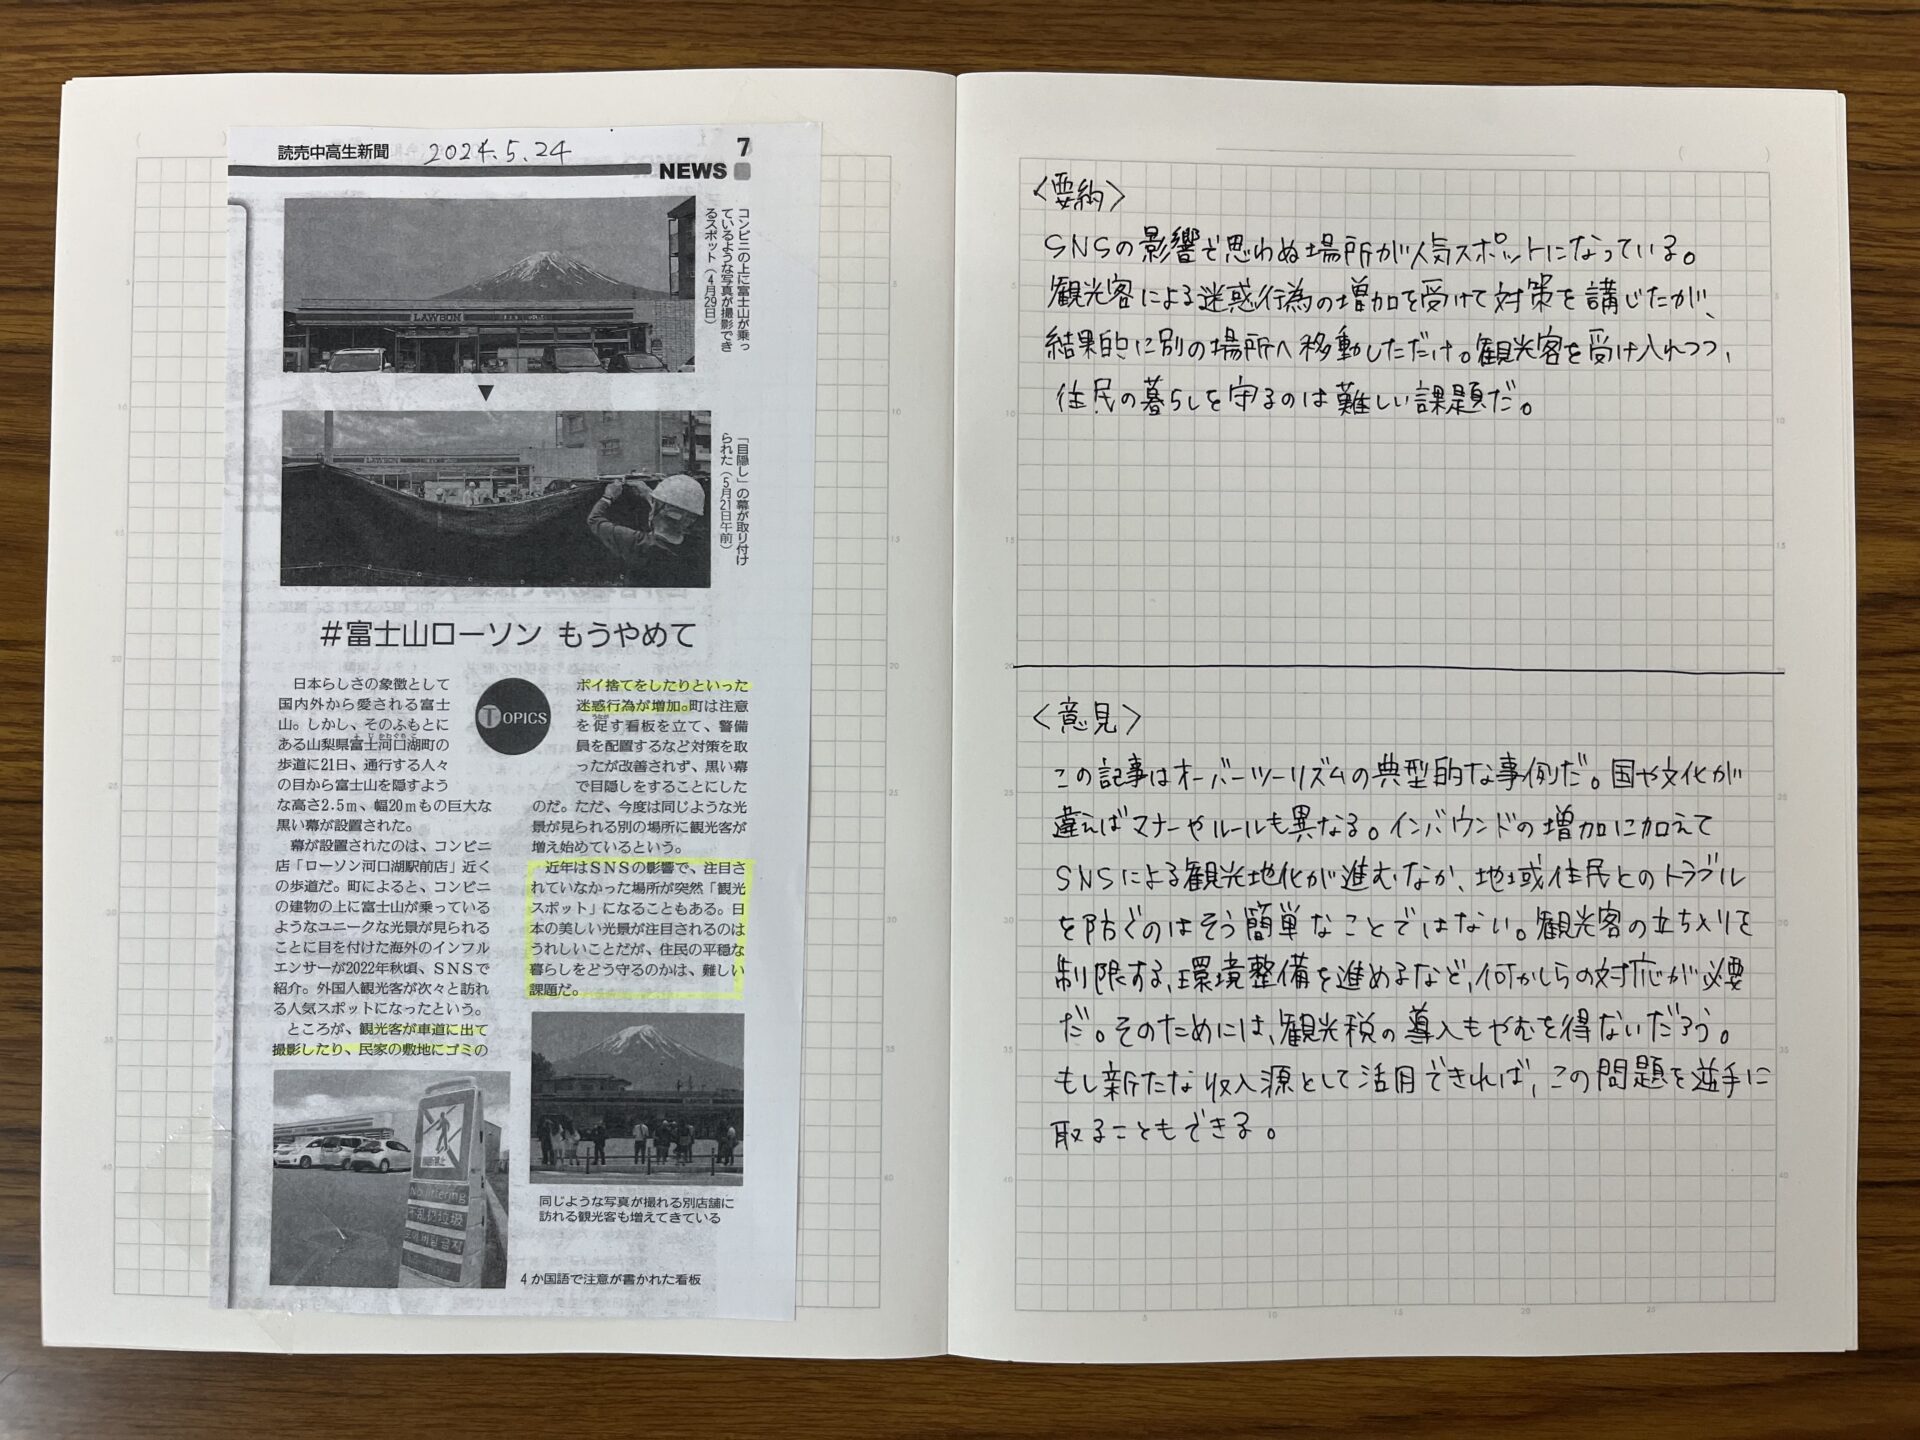 読売中高生新聞
2024.5.24
7
NEWS
LAWSON
コンビニの上に富士山が乗っ
ているような写真が撮影でき
るスポット（4月29日）
▼
「目隠し」の幕が取り付け
られた（5月21日午前）
#富士山ローソン もうやめて
TOPICS
日本らしさの象徴として
国内外から愛される富士
山。しかし、そのふもとに
ある山梨県富士河口湖町の
歩道に21日、通行する人々
の目から富士山を隠すよう
な高さ2.5m、幅20mもの巨大な
黒い幕が設置された。
幕が設置されたのは、コンビニ
店「ローソン河口湖駅前店」近く
の歩道だ。町によると、コンビニ
の建物の上に富士山が乗っている
ようなユニークな光景が見られる
ことに目を付けた海外のインフル
エンサーが2022年秋頃、SNSで
紹介。外国人観光客が次々と訪れ
る人気スポットになったという。
ところが、観光客が車道に出て
撮影したり、民家の敷地にゴミの
ポイ捨てをしたりといった
迷惑行為が増加。町は注意
を促す看板を立て、警備
員を配置するなど対策を取
ったが改善されず、黒い幕
で目隠しをすることにした
のだ。ただ、今度は同じような光
景が見られる別の場所に観光客が
増え始めているという。
近年はSNSの影響で、注目さ
れていなかった場所が突然「観光
スポット」になることもある。日
本の美しい光景が注目されるのは
うれしいことだが、住民の平穏な
暮らしをどう守るのかは、難しい
課題だ。
No littering
不乱扔垃圾
4か国語で注意が書かれた看板
同じような写真が撮れる別店舗に
訪れる観光客も増えてきている
〈要約〉
SNSの影響で思わぬ場所が人気スポットになっている。
観光客による迷惑行為の増加を受けて対策を講じたが、
結果的に別の場所へ移動しただけ。観光客を受け入れつつ、
住民の暮らしを守るのは難しい課題だ。
〈意見〉
この記事はオーバーツーリズムの典型的な事例だ。国や文化が
違えばマナーやルールも異なる。インバウンドの増加に加えて
SNSによる観光地化が進むなか、地域住民とのトラブル
を防ぐのはそう簡単なことではない。観光客の立ち入りを
制限する、環境整備を進めるなど、何かしらの対応が必要
だ。そのためには、観光税の導入もやむを得ないだろう。
もし新たな収入源として活用できれば、この問題を逆手に
取ることもできる。